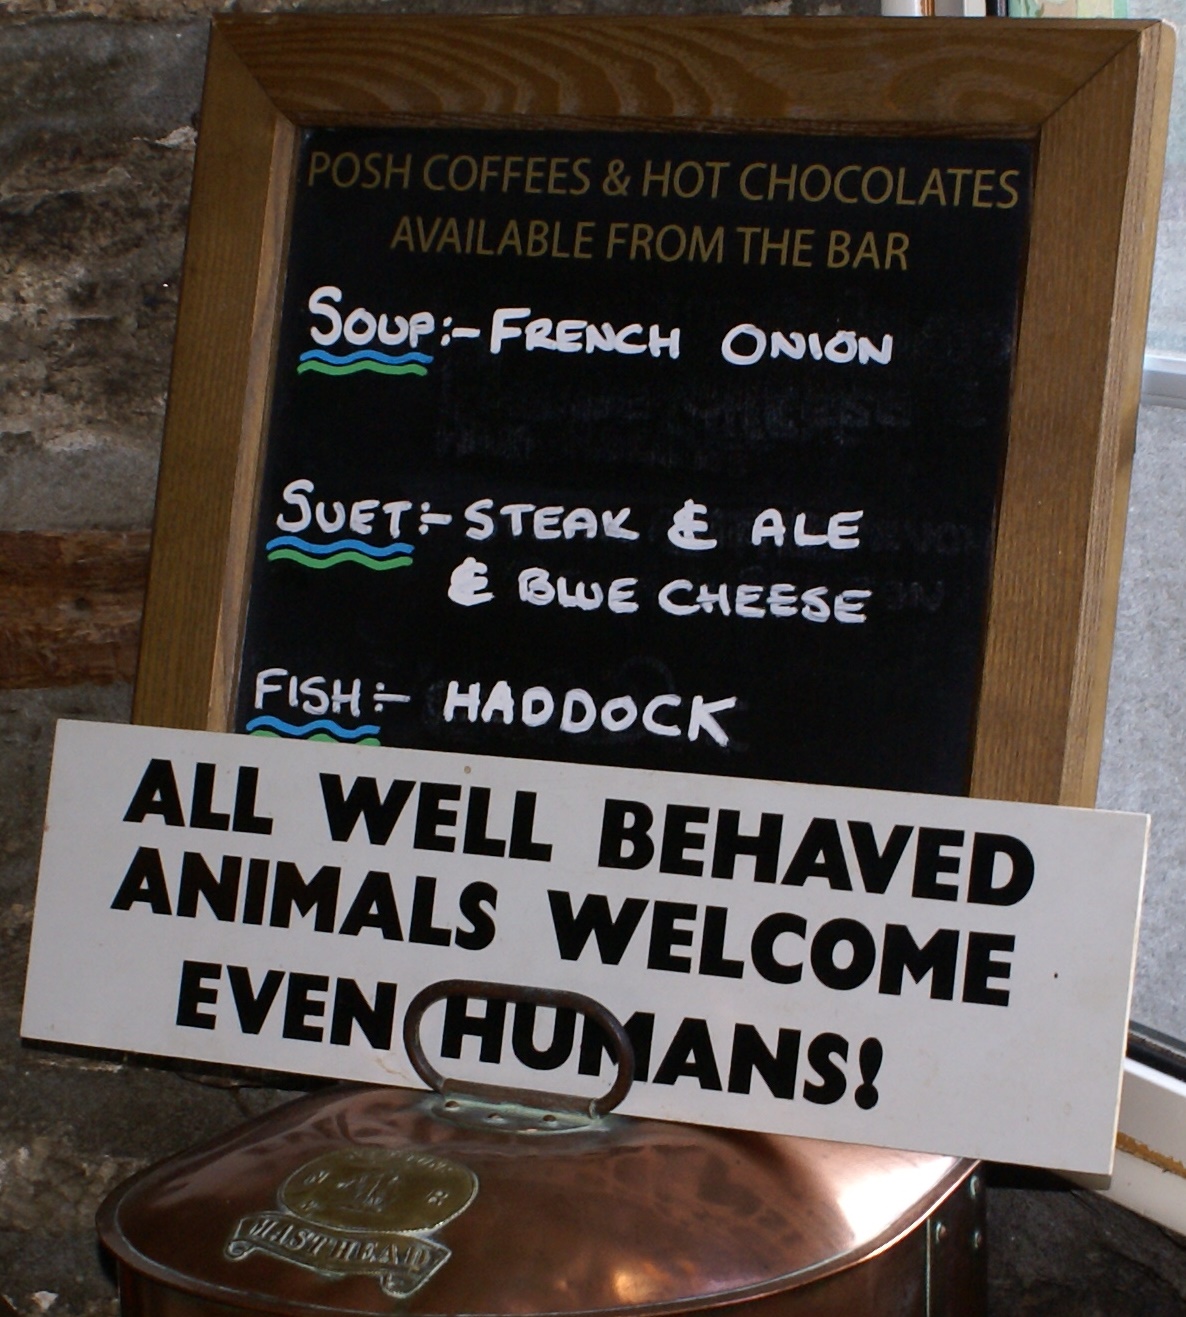 POSH COFFEES & HOT CHOCOLATES
AVAILABLE FROM THE BAR
SOUP:- FRENCH ONION
SUET:- STEAK & ALE
& BLUE CHEESE
FISH:- HADDOCK
ALL WELL BEHAVED
ANIMALS WELCOME
EVEN HUMANS!
MASTHEAD